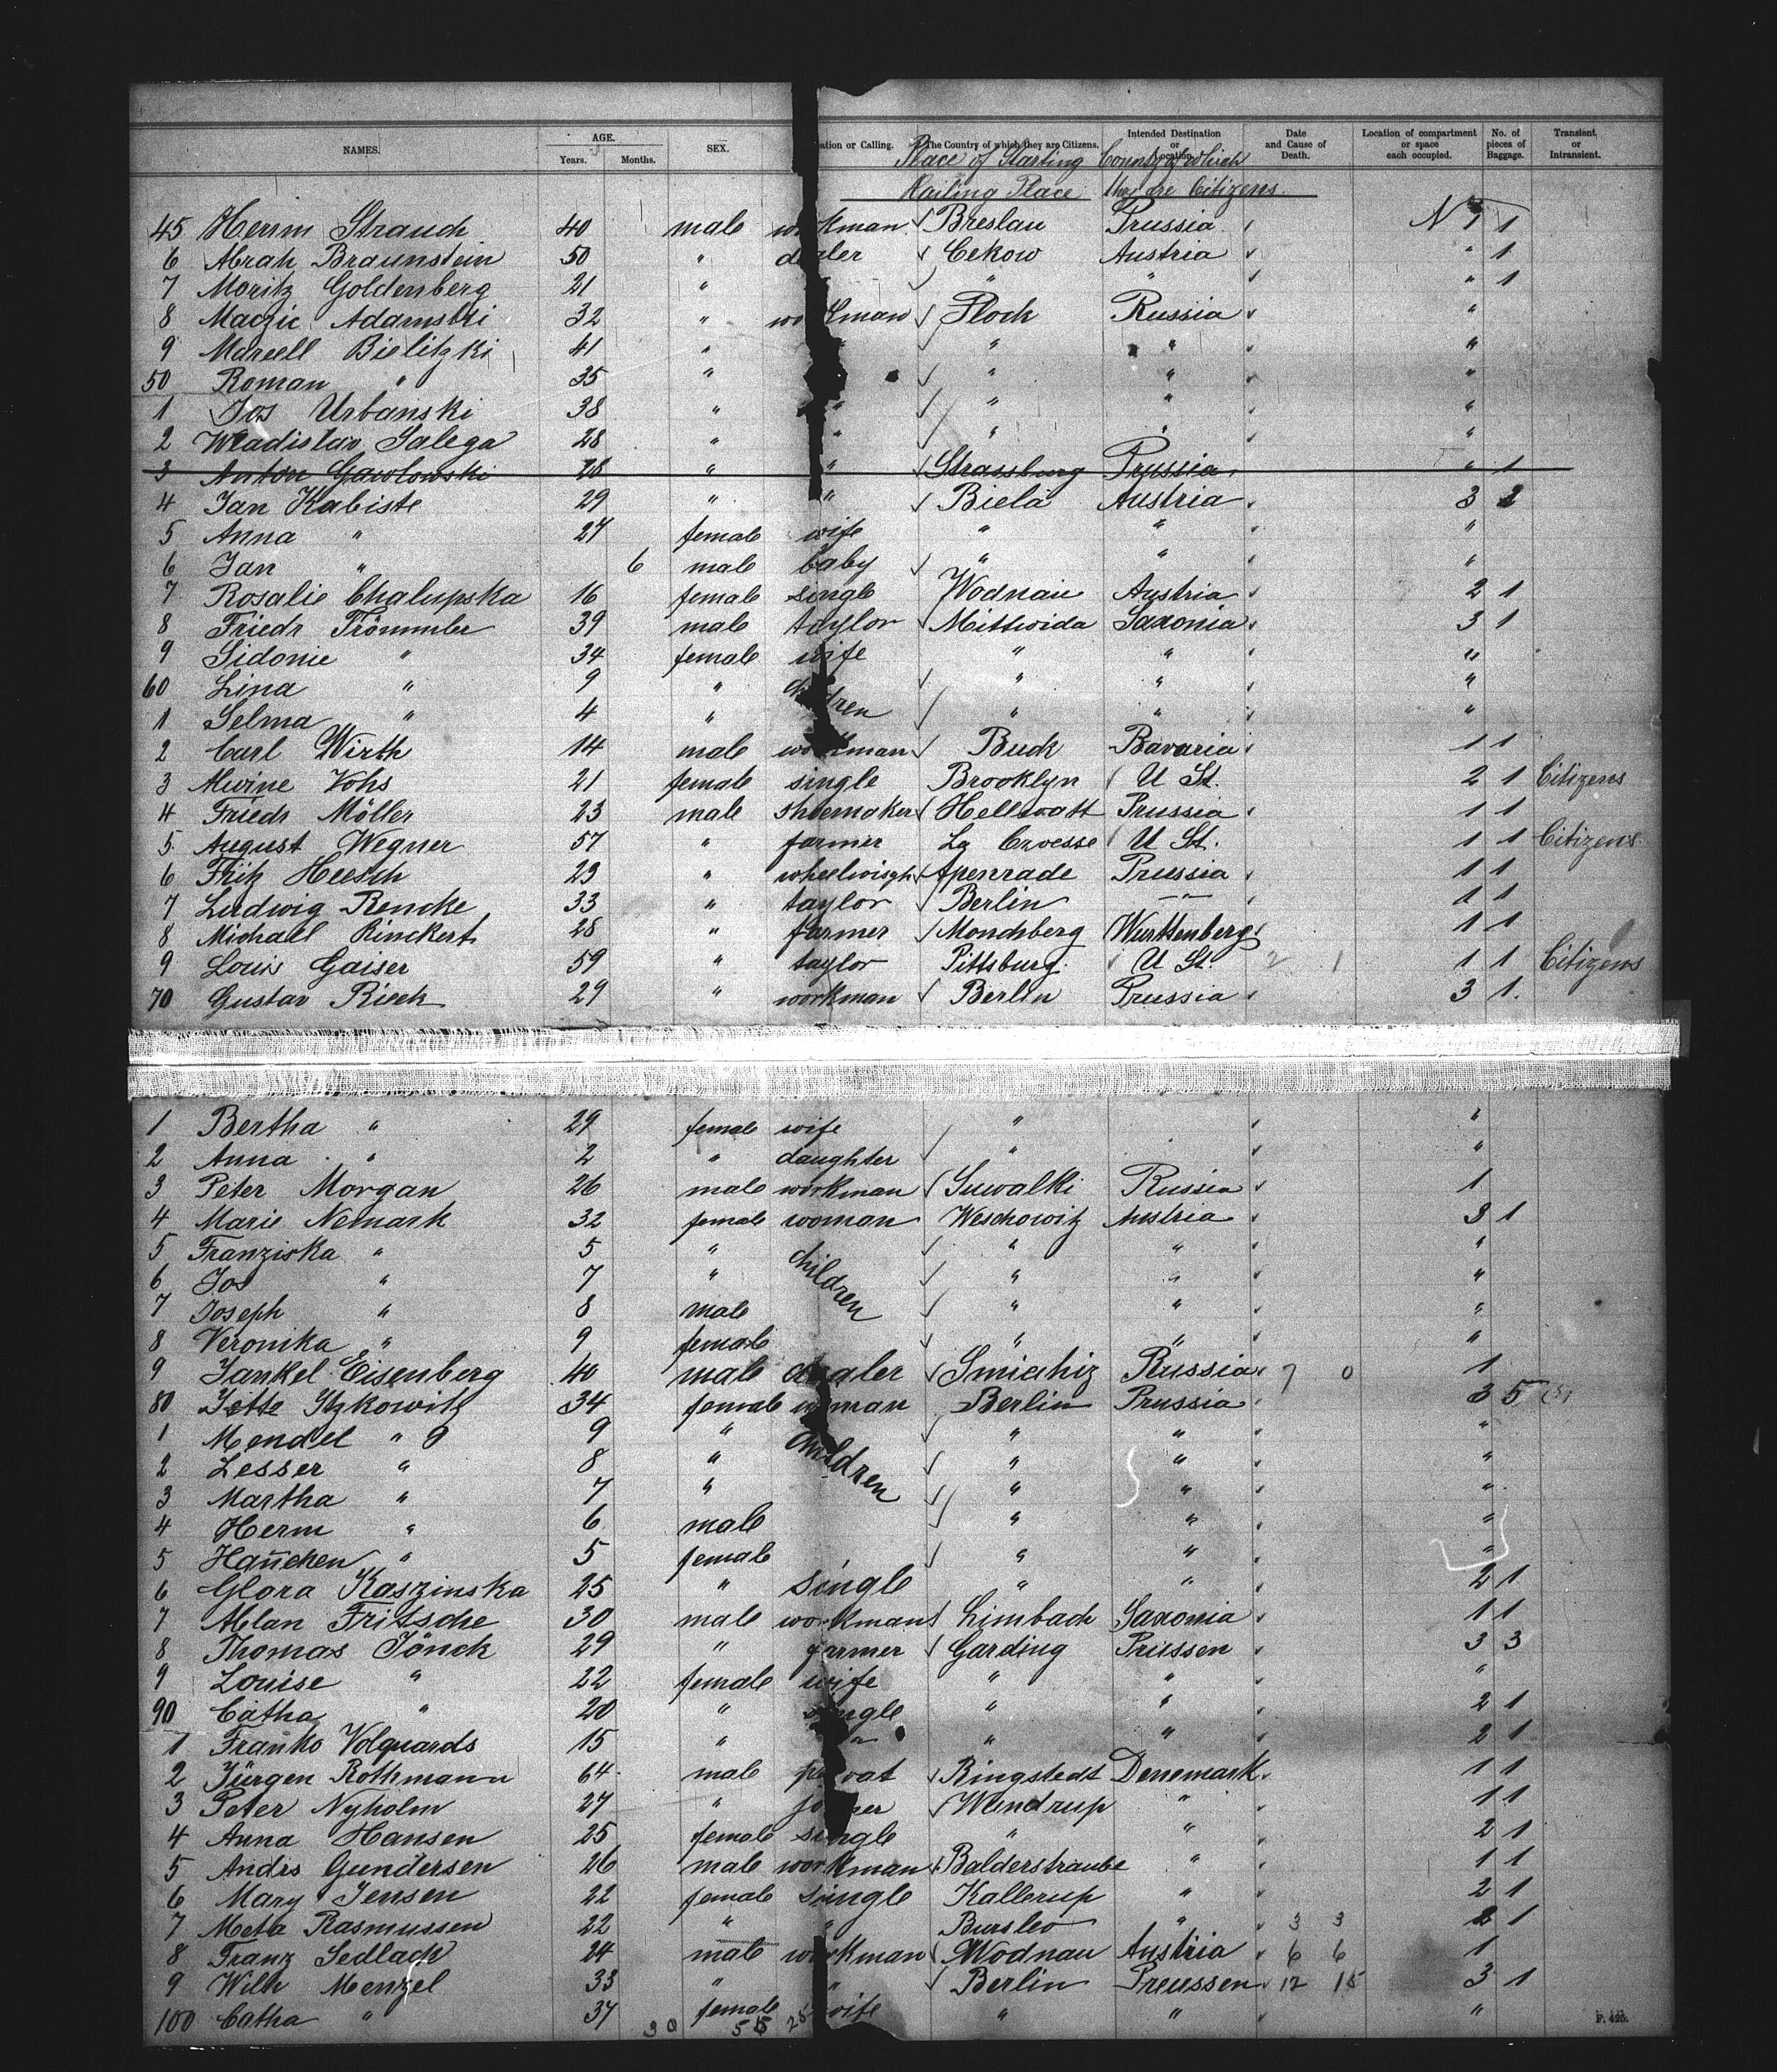 NAMES. AGE. Years. Months. SEX. ation or Calling. The Country of which they are Citizens. Intended Destination or Location. Date and Cause of Death. Location of compartment or space each occupied. No. of pieces of Baggage. Transient, or Intransient.
Place of Starting Country of which
Railing Place they are Citizens.
45 Herrm Strauch 40 male workman Breslau Prussia 1 1
6 Abrah Braunstein 50 " dealer Cekow Austria " 1
7 Moritz Goldenberg 21 " " " " 1
8 Maczic Adamski 32 " workman Plock Russia "
9 Marcell Bielitzki 41 " " " "
50 Roman " 35 " " " "
1 Jos Urbanski 38 " " " " "
2 Wladislav Salega 28 " " " " "
3 Anton Gawlowski 28 " " Strassburg Prussia " 1
4 Jan Kabiste 29 " " Biela Austria 3 2
5 Anna " 27 female wife " " "
6 Jan " 6 male baby " " "
7 Rosalie Chalupska 16 female single Wodnau Austria 2 1
8 Friedr Trömmler 39 male taylor Mittwida Saxonia 3 1
9 Sidonie " 34 female wife " " "
60 Lina " 9 " children " " "
1 Selma " 4 " " " "
2 Carl Wirth 14 male workman Buck Bavaria 1 1
3 Alwine Vohs 21 female single Brooklyn U St. 2 1 Citizens
4 Friedr Möller 23 male shoemaker Hellwatt Prussia 1 1
5 August Wegner 57 " farmer La Croesse U St. 1 1 Citizens
6 Fritz Heesch 23 " wheelwisgh Apenrade Prussia 1 1
7 Ludwig Rencke 33 " taylor Berlin —"— 1 1
8 Michael Rinckert 28 " farmer Mondsberg Wurttenberg 1 1
9 Louis Gaiser 59 " taylor Pittsburg U St. 2 1 1 1 Citizens
70 Gustav Rieck 29 " workman Berlin Prussia 3 1.
1 Bertha " 29 female wife " "
2 Anna " 2 " daughter " "
3 Peter Morgan 26 male workman Suwalki Russia 1
4 Marie Nemark 32 female woman Weschowitz Austria 3 1
5 Franziska " 5 " children " " "
6 Jos " 7 " " " "
7 Joseph " 8 male " " "
8 Veronika " 9 female " " "
9 Jankel Eisenberg 40 male dealer Smiahiz Russia 7 0 1
80 Jette Itzkowitz 34 female woman Berlin Prussia 3 5
1 Mendel " 9 9 " children " " "
2 Lesser " 8 " " " "
3 Martha " 7 " " " "
4 Herm " 6 male " " "
5 Hañchen " 5 female " " "
6 Glora Kaszinska 25 " single " " 2 1
7 Allan Fritsche 30 male workman Limbach Saxonia 1 1
8 Thomas Jönck 29 " farmer Garding Prüssen 3 3
9 Louise " 22 female wife " " "
90 Catha " 20 " single " " 2 1
1 Frañko Volquards 15 " " " " 2 1
2 Jürgen Rothmann 64 male privat Ringstedt Denemark 1 1
3 Peter Nyholm 27 " joiner Wamdrup " 1 1
4 Anna Hansen 25 female single " " 2 1
5 Andrs Gundersen 26 male workman Balderstraube " 1 1
6 Mary Jensen 22 female single Kallerup " 2 1
7 Meta Rasmussen 22 " " Burslev " 3 3 2 1
8 Franz Sedlack 24 male workman Wodnau Austria 6 6 1
9 Wilh Menzel 33 " " Berlin Preussen 12 15 3 1
100 Catha " 37 female wife " " "
30 55 25
F. 425.